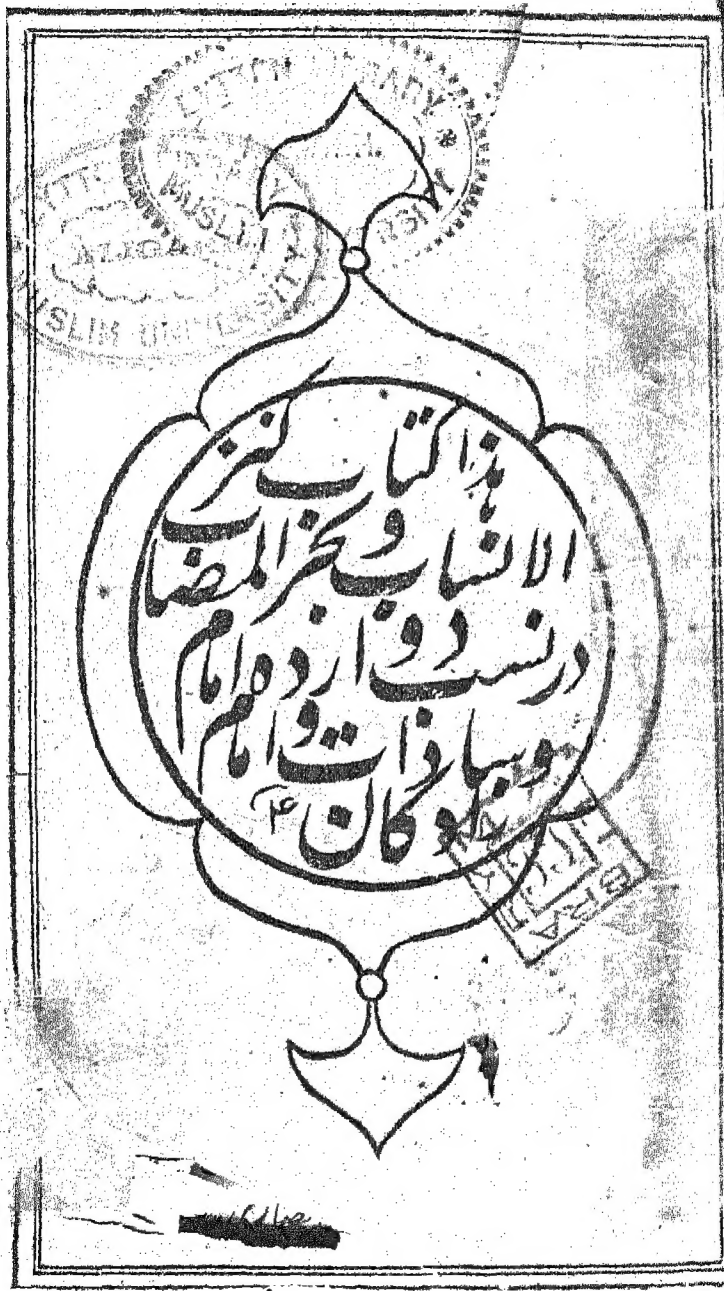 LYTTON LIBRARY *
MUSLIM
MUSLIM UNIVERSITY
هذا کتاب کنز
الانساب و بحر المصاب
در نسب دوازده امام
و سادات و امام
زادگان ۴